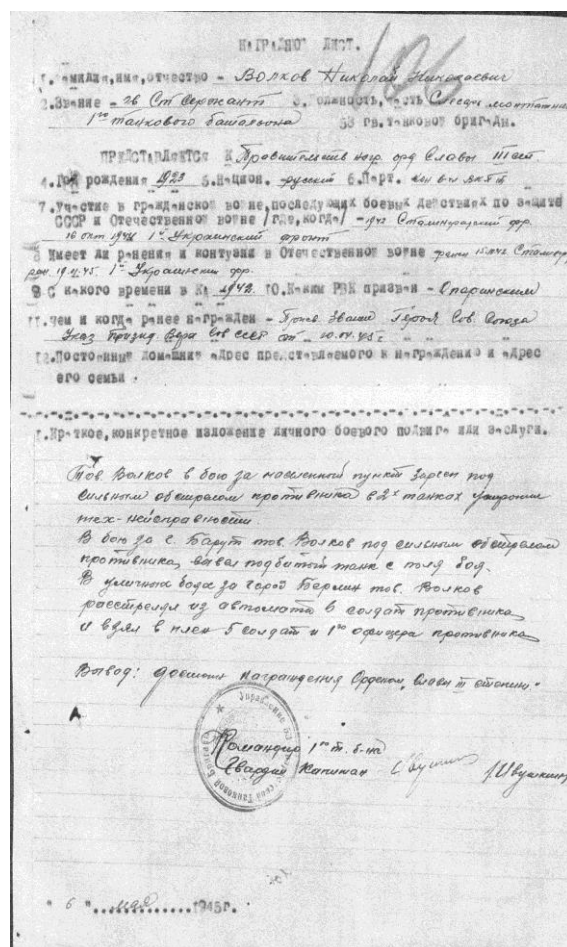 НАГРАДНОЙ ЛИСТ.
106
1. Фамилия, имя, отчество - Волков Николай Николаевич
2. Звание - гв Ст Сержант 3. Должность, часть Слесарь монтажник
1го танкового батальона 53 гв. танковой бригады.
ПРЕДСТАВЛЯЕТСЯ К Правительств нагр. орд Славы III ст
4. Год рождения 1923 5. Национ. русский 6. Парт.
7. Участие в гражданской войне, последующих боевых действиях по защите
СССР и Отечественной войне /где, когда/ - 1942 Сталинградский фр.
16 окт 1942 1й Украинский фронт
8 Имеет ли ранения и контузии в Отечественной войне
1й Украинский фр.
9. С какого времени в КА 1942 10. Каким РВК призван - Опаринским
11. Чем и когда ранее награжден - Героя Сов. Союза
Указ Презид Верх Сов СССР от 10.04.45г
12. Постоянный домашний адрес представляемого к награждению и адрес
его семьи.
1. Краткое, конкретное изложение личного боевого подвига или заслуги.
Тов Волков в бою за населенный пункт под
сильным обстрелом противника в 2х танках устранил
тех-неисправности
В бою за с. Барут тов. Волков под сильным обстрелом
противника, вывел подбитый танк с поля боя.
В уличных боях за город Берлин тов. Волков
расстрелял из автомата 6 солдат противника,
и взял в плен 5 солдат и 1го офицера противника
Вывод: достоин награждения Орденом Славы III степени.
Командир 1го т. б-на
Гвардии Капитан
"6" мая 1945г.